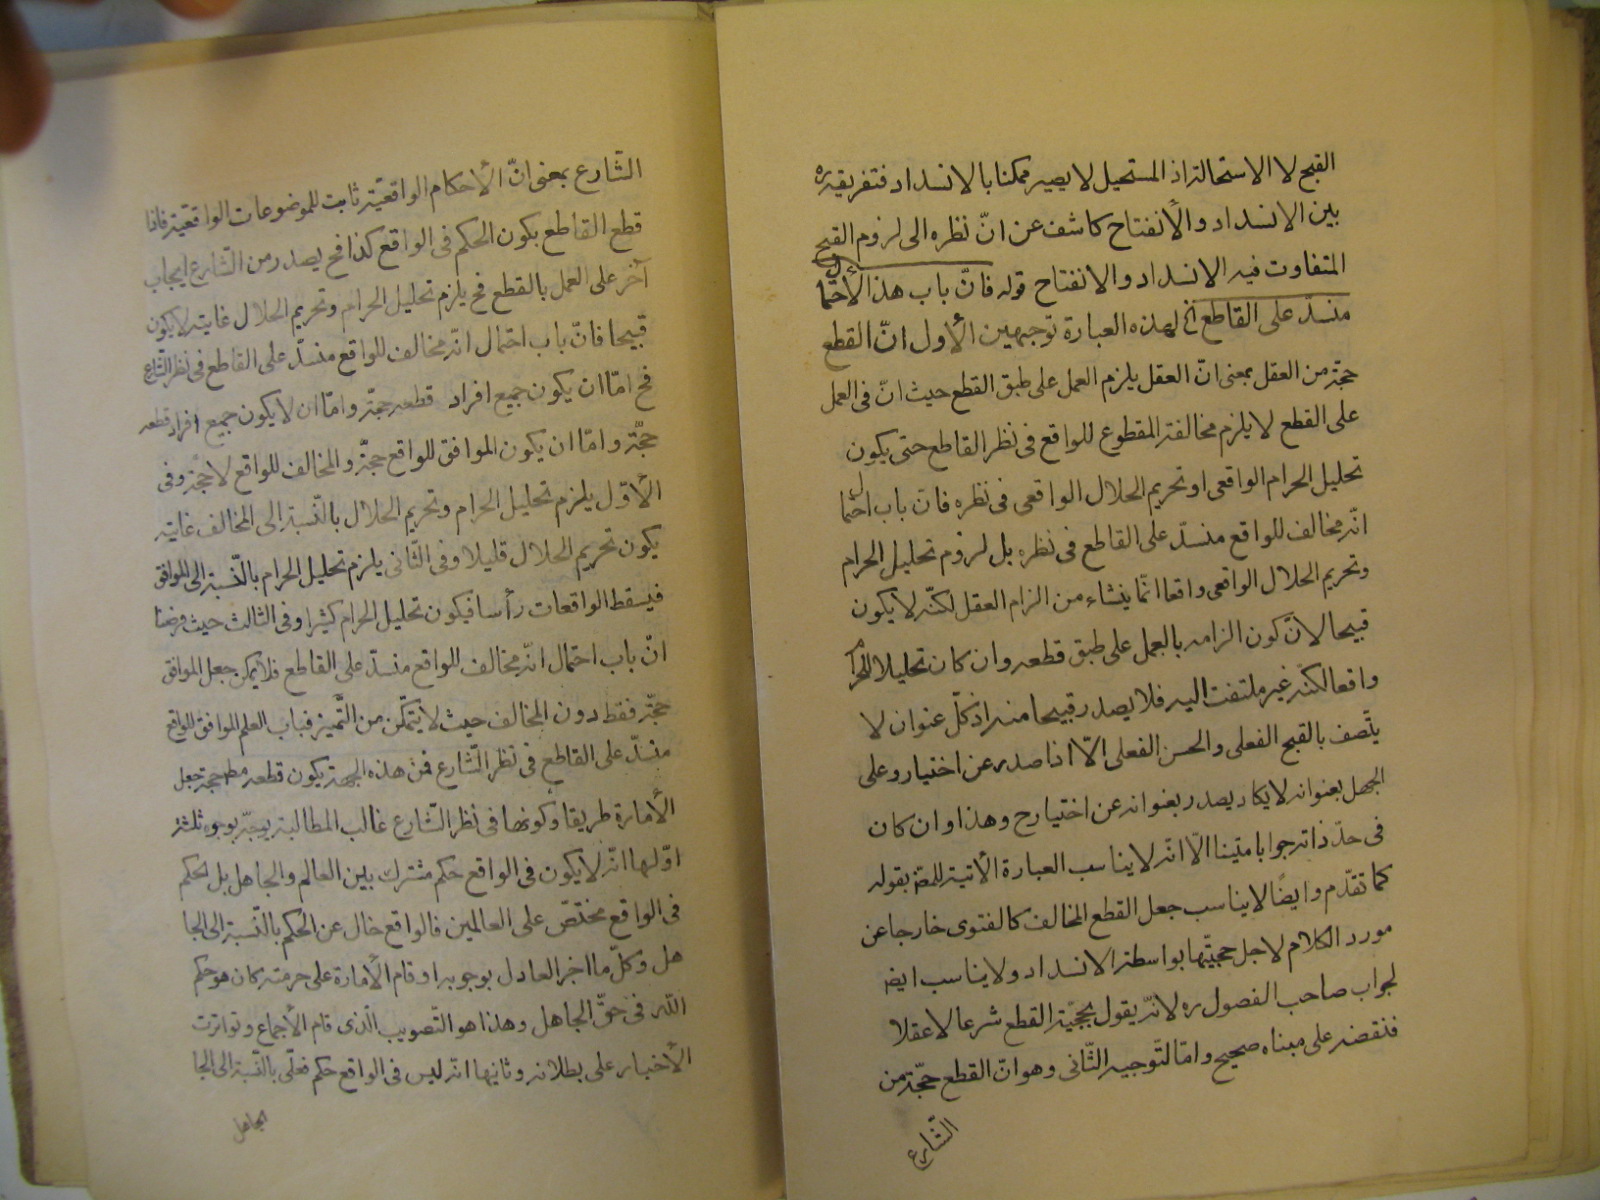 القبح لا الاستحالة اذ المستحيل لا يصير ممكنا بالانسداد فتفريقه ره
بين الانسداد والأنفتاح كاشف عن انّ نظره الى لزوم القبح
المتفاوت فيه الانسداد والانفتاح قوله فانّ باب هذا الأحتمال
منسدّ على القاطع الخ لهذه العبارة توجيهين الأول انّ القطع
حجّة من العقل بمعنى انّ العقل يلزم العمل على طبق القطع حيث انّ فى العمل
على القطع لا يلزم مخالفة المقطوع للواقع فى نظر القاطع حتى يكون
تحليل الحرام الواقعى او تحريم الحلال الواقعى فى نظره فان باب احتمال
انّه مخالف للواقع منسدّ على القاطع فى نظره بل لزوم تحليل الحرام
وتحريم الحلال الواقعى واقعا انّما ينشاء من الزام العقل لكنّه لا يكون
قبيحا لانّ كون الزامه بالعمل على طبق قطعه وان كان تحليلا للحرام
واقعا لكنّه غير ملتفت اليه فلا يصدر قبيحا منه اذ كلّ عنوان لا
يتّصف بالقبح الفعلى والحسن الفعلى الّا اذا صدر عن اختيار وعلى
الجهل بعنوانه لا يكاد يصدر بعنوانه عن اختيار ح وهذا وان كان
فى حدّ ذاته جوابا متينا الّا انّه لا يناسب العبارة الأتية للمص بقوله
كما تقدّم وايضًا لا يناسب جعل القطع المخالف كالفتوى خارجا عن
مورد الكلام لاجل حجيّتها بواسطة الانسداد ولا يناسب ايض
لجواب صاحب الفصول ره لانّه يقول بحجيّة القطع شرعا لا عقلا
فنقضه على مبناه صحيح وامّا التّوجيه الثّانى وهو انّ القطع حجّة من
الشّارع
الشّارع بمعنى انّ الأحكام الواقعيّة ثابت للموضوعات الواقعيّة فاذا
قطع القاطع بكون الحكم فى الواقع كذا فح يصدر من الشّارع ايجاب
آخر على العمل بالقطع فح يلزم تحليل الحرام وتحريم الحلال غايته لا يكون
قبيحا فانّ باب احتمال انّه مخالف للواقع منسدّ على القاطع فى نظر الشّارع
فح امّا ان يكون جميع افراد قطعه حجّة وامّا ان لا يكون جميع افراد قطعه
حجّة وامّا ان يكون الموافق للواقع حجّة والمخالف للواقع لا حجّة وفى
الأوّل يلزم تحليل الحرام وتحريم الحلال بالنّسبة الى المخالف غايته
يكون تحريم الحلال قليلا وفى الثّانى يلزم تحليل الحرام بالنّسبة الى الموافق
فيسقط الواقعات رأسا فيكون تحليل الحرام كثيرا وفى الثالث حيث فرضنا
انّ باب احتمال انّه مخالف للواقع منسدّ على القاطع فلا يمكن جعل الموافق
حجّة فقط دون المخالف حيث لا يتمكّن من التّميز فباب العلم الموافق للواقع
منسدّ على القاطع فى نظر الشّارع فمن هذه الجهة يكون قطعه مط حجة جعل
الأمارة طريقا وكونها فى نظر الشّارع غالب المطابقة يوجّه بوجوه ثلثة
اوّلها انّه لا يكون فى الواقع حكم مشترك بين العالم والجاهل بل الحكم
فى الواقع مختصّ على العالمين فالواقع خال عن الحكم بالنّسبة الى الجا
هل وكلّ ما اخبر العادل بوجوبه او قام الأمارة على حرمته كان هو حكم
اللّه فى حقّ الجاهل وهذا هو التّصويب الّذى قام الأجماع وتواترت
الأخبار على بطلانه وثانيها انّه ليس فى الواقع حكم فعلّى بالنّسبة الى الجا
الجاهل